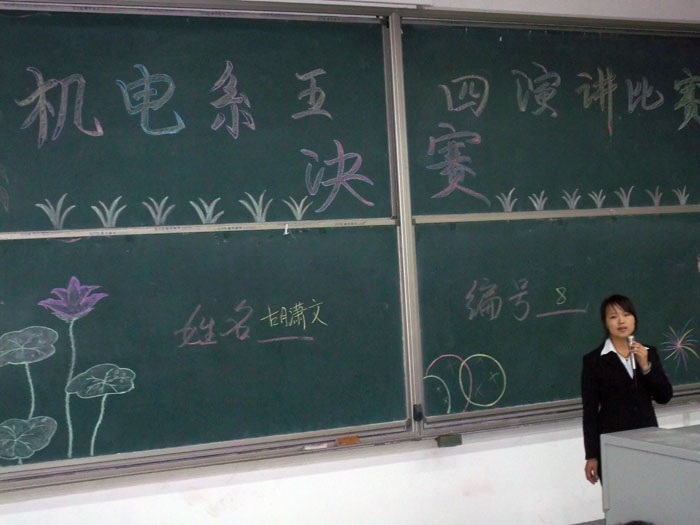 机电系五四演讲比赛
决赛
姓名 胡潇文
编号 8